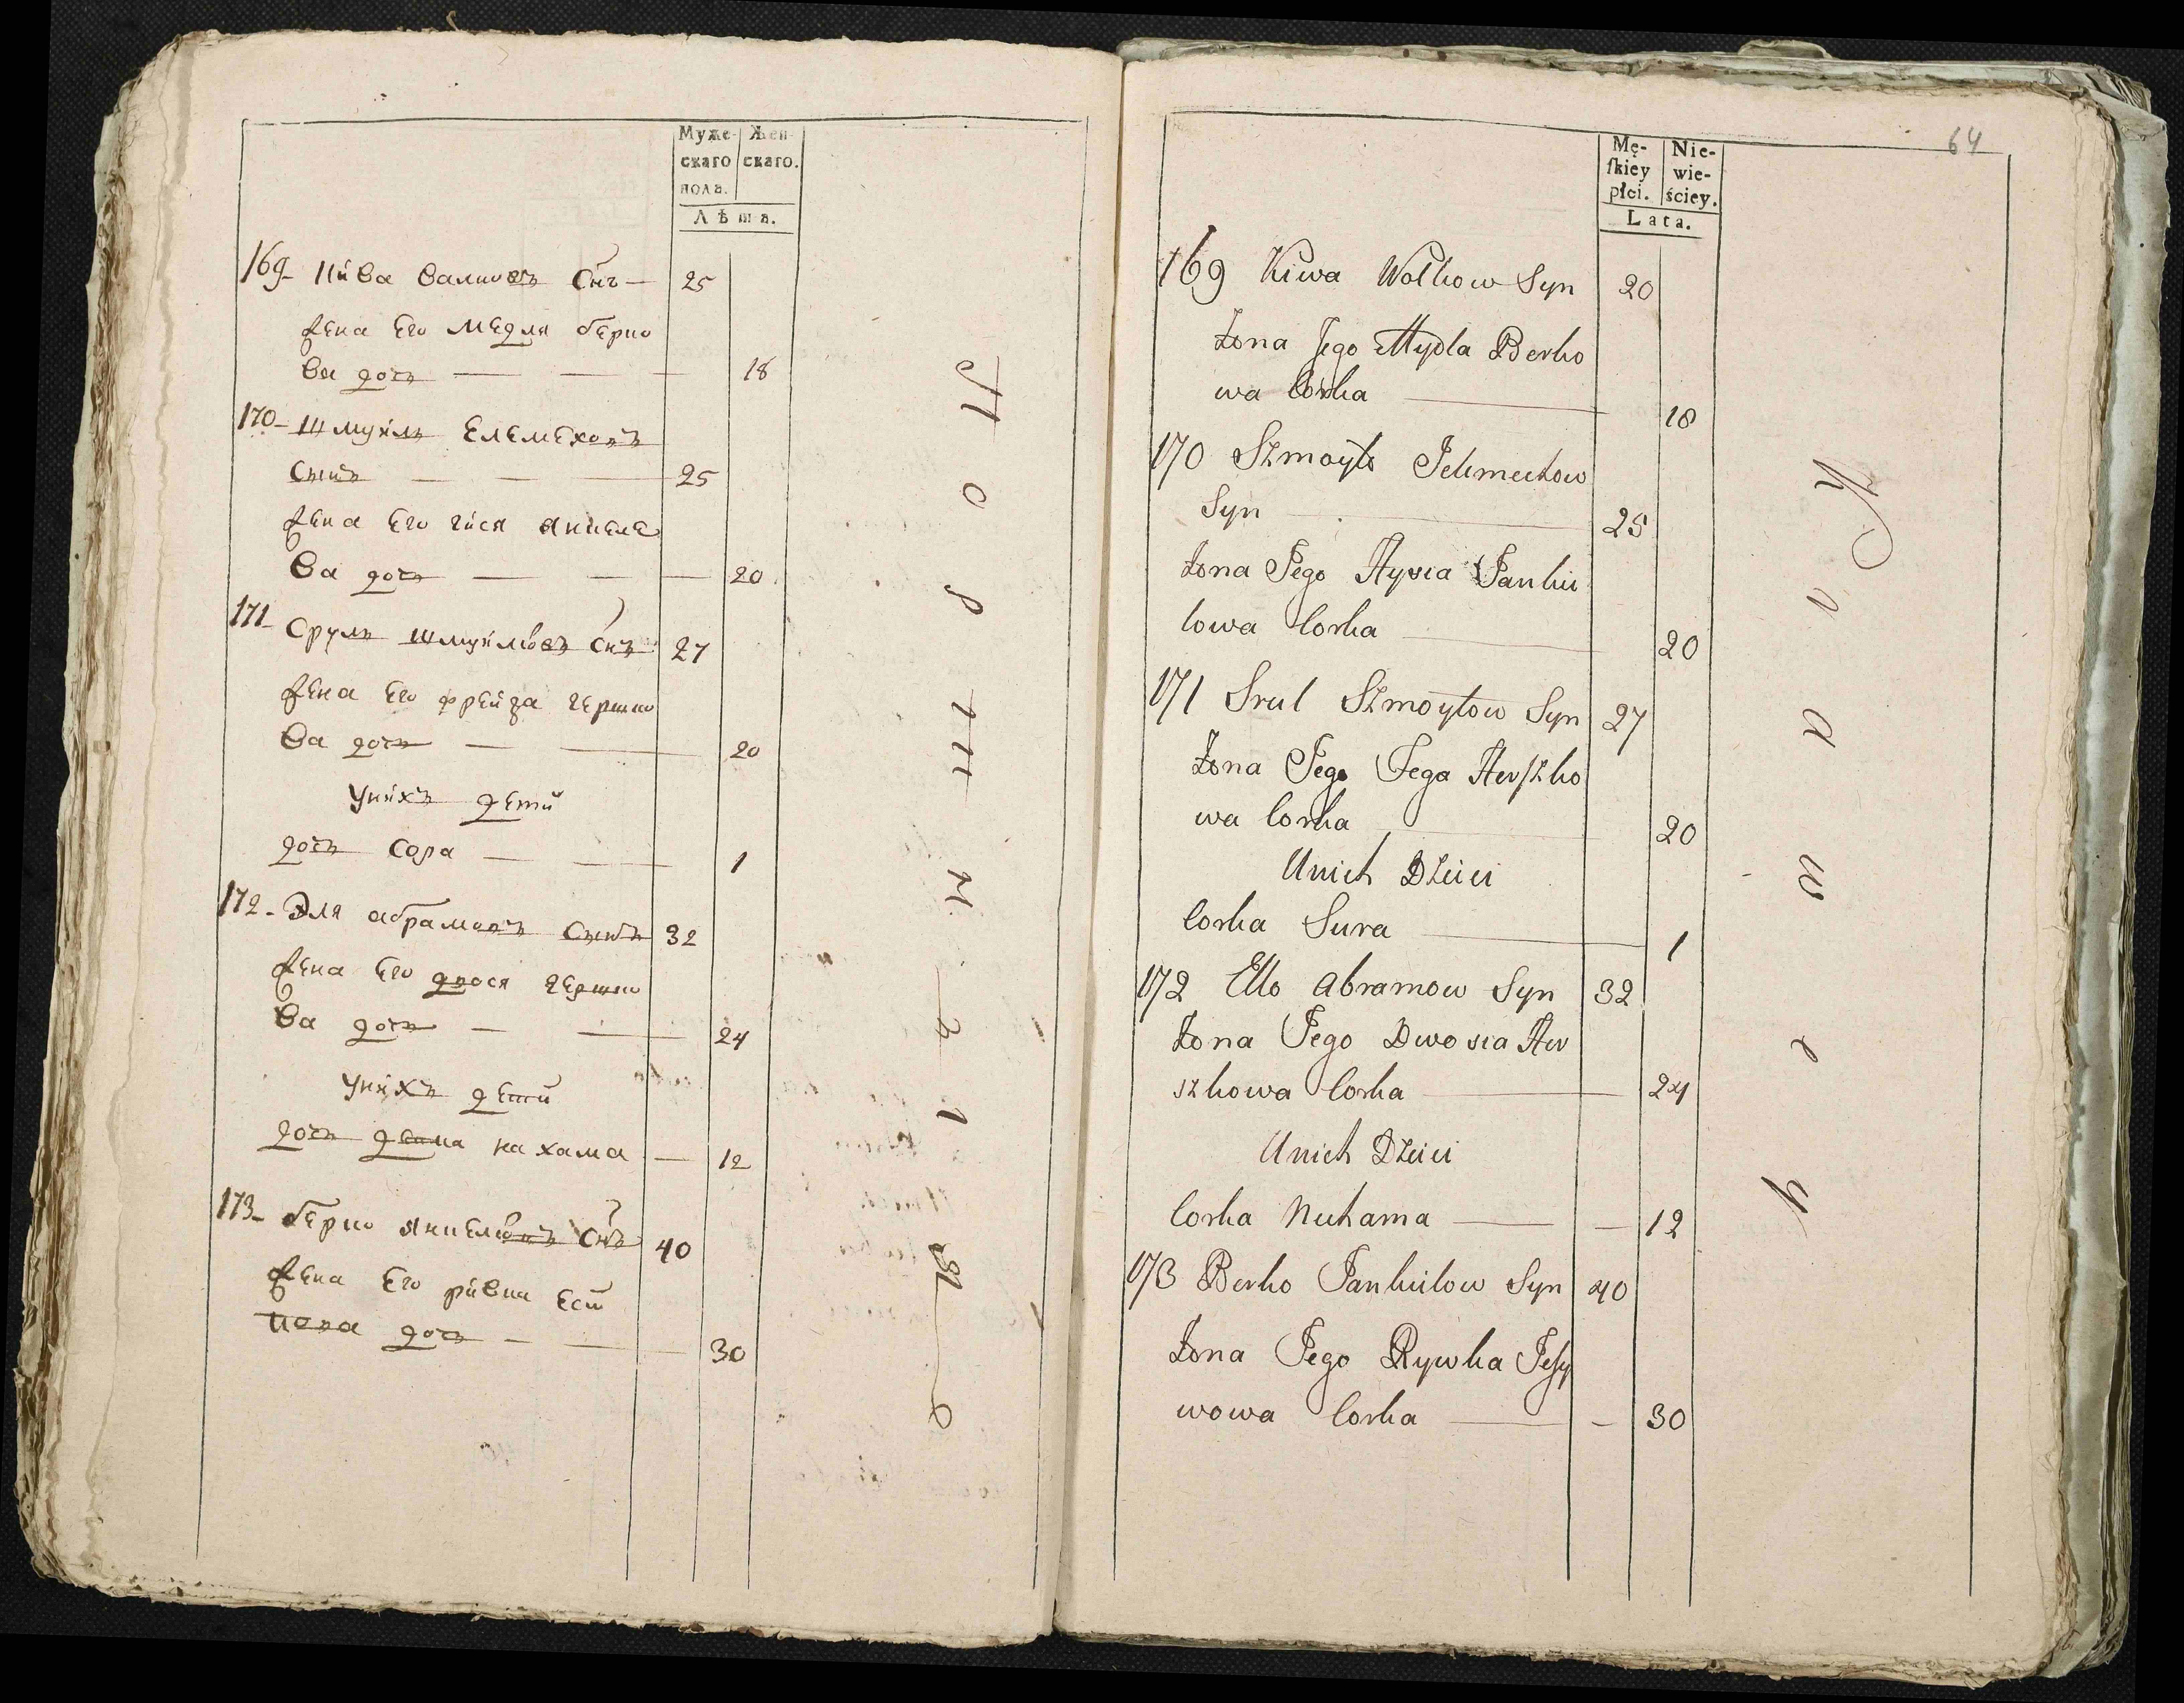 Муже-
скаго
пола.
Жен-
скаго.
Лѣта.
169- Кива Валковъ Снъ — 25
жена Его Медля берко
ва дочъ — — — 18
170- Шмуйлъ Елемеховъ
Сынъ — — — 25
жена Его гися янкеле
ва дочъ — — — 20
171- Срулъ шмуйловъ Снъ 27
жена Его фрейда гершко
ва дочъ — — 20
Унихъ дети
дочъ Сора — — 1
172- Эля абрамовъ Сынъ 32
жена Его двося гершко
ва дочъ — — 24
Унихъ дети
дочъ нахама — 12
173- берко янкелёвъ Снъ 40
жена Его ривка Есй
пова дочъ — — 30
64
Mę-
ſkiey
płci.
Nie-
wie-
ściey.
Lata.
169 Kiwa Wolkow Syn 20
Żona Jego Mydla Berko
wa Corka — 18
170 Szmoyło Jelmechow
Syn — 25
Żona Jego Hysia Jankie
lowa Corka — 20
171 Srul Szmoyłow Syn 27
Żona Jego Fega Herſzko
wa Corka — 20
Unich Dzieci
Corka Sura — 1
172 Ello Abramow Syn 32
Żona Jego Dwosia Her
szkowa Corka — 24
Unich Dzieci
Corka Nechama — — 12
173 Berko Jankielow Syn 40
Żona Jego Rywka Jeſy
wowa Corka — — 30